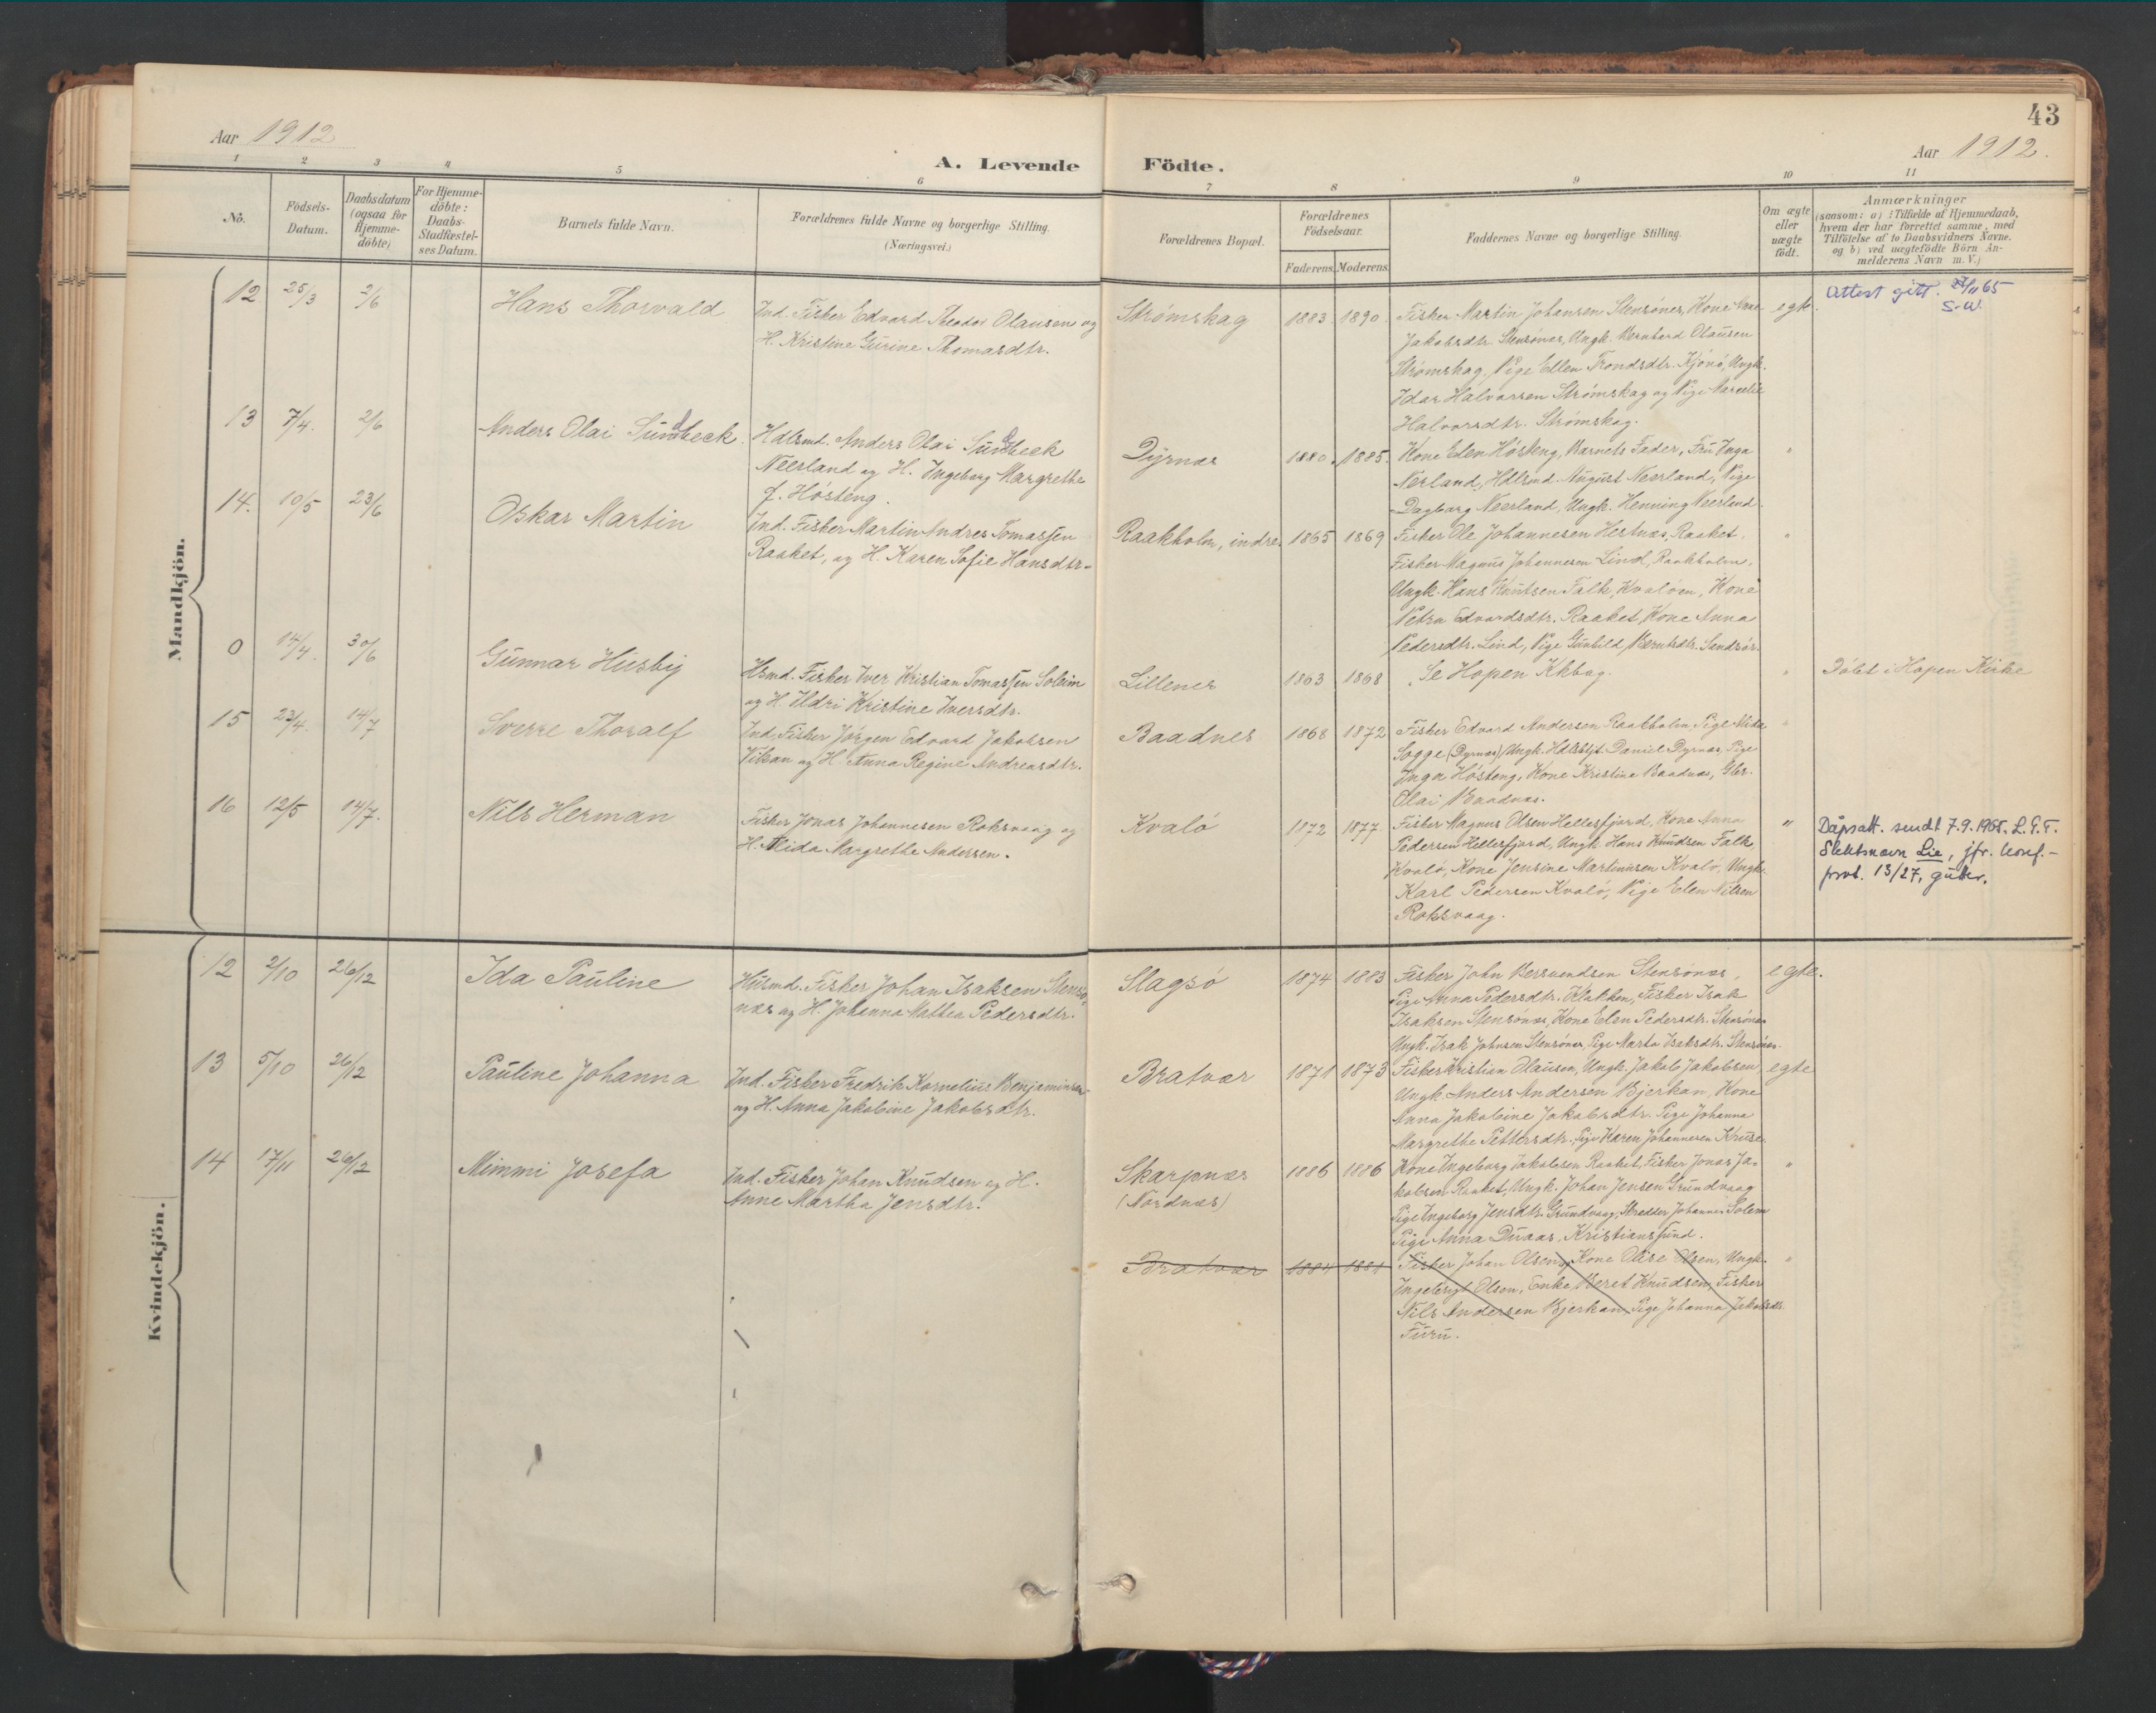 43
Aar 1912
Aar 1912.
A. Levende Födte.
1 2 3 4 5 6 7 8 9 10 11
No.
Födsels-
Datum.
Daabsdatum
(ogsaa for
Hjemme-
döbte)
For Hjemme-
döbte:
Daabs-
Stadfæstel-
ses Datum.
Barnets fulde Navn.
Forældrenes fulde Navne og borgerlige Stilling.
(Næringsvei.)
Forældrenes Bopæl.
Forældrenes
Födselsaar.
Faderens. Moderens.
Faddernes Navne og borgerlige Stilling.
Om ægte
eller
uægte
födt.
Anmærkninger
(saasom: a) i Tilfælde af Hjemmedaab,
hvem der har forrettet samme, med
Tilföielse af to Daabsvidners Navne.
og b) ved uægtefödte Börn An-
melderens Navn m. V.)
Mandkjön.
12 25/3 2/6
Hans Thorvald
Ind. Fisker Edvard Theodor Olausen og
H. Kristine Gurine Thomasdtr.
Strømskag
1883. 1890.
Fisker Martin Johansen Stensønes, Kone
Jakobsdtr. Stensønes, Ungk. Bernhard Olausen
Strømskag, Pige Ellen Trondsdtr. Kjønø, Ungk.
Idar Halvorsen Strømskag og Pige
Halvorsdtr. Strømskag.
egte.
Attest gitt. 65
S.W.
13 7/4. 2/6
Anders Olai Sundbeck.
Hdlsmd. Anders Olai Sundbeck
Neerland og H. Ingeborg Margrethe
f. Høsteng.
Dyrnæs
1880. 1885.
Kone Elen Høsteng, Barnets Fader, Fru Inga
Nerland, Hdlsmd. August Neerland, Pige
Dagborg Neerland, Ungk. Henning Neerland.
"
14. 10/5 23/6
Oskar Martin
Ind. Fisker Martin Andres Tomassen
Raaket, og H. Karen Sofie Hansdtr.
Raakholm, indre.
1865 1869
Fisker Ole Johannesen Hestnæs, Raaket.
Fisker Magnus Johannesen Lind, Raakholm.
Ungk. Hans Knutsen Falk, Kvaløen, Kone
Petra Edvardsdtr. Raaket, Kone Anna
Pedersdtr. Lind, Pige Gunhild Berntsdtr. Sandsør.
"
0 14/4. 30/6
Gunnar Husby
Hsmd. Fisker Iver Kristian Tomassen Soleim
og H. Ildri Kristine Iversdtr.
Lillenes
1863 1868
Se Hopen Kkbog.
"
Døbt i Hopen Kirke
15 23/4. 14/7
Sverre Thoralf
Ind. Fisker Jørgen Edvard Jakobsen
Vikan og H. Anna Regine Andreasdtr.
Baadnes
1868 1872
Fisker Edvard Andersen Raakholm, Pige Alida
Sogge (Dyrnæs), Ungk. Hdlsbtj. Daniel Dyrnæs, Pige
Inga Høsteng, Kone Kristine Baadnæs, Gbr.
Olai Baadnæs.
"
16 12/5 14/7.
Nils Herman
Fisker Jonas Johannesen Roksvaag og
H. Alida Margrethe Andersen.
Kvalø
1872 1877.
Fisker Magnus Olsen Hellesfjord, Kone Anna
Pedersen Hellesfjord, Ungk. Hans Knudsen Falk,
Kvalø, Kone Jensine Martinusen Kvalø, Ungk.
Karl Pedersen Kvalø, Pige Elen Nilsen
Roksvaag.
"
Dåpsatt. sendt 7.9.1965. L.G.T.
Slektsnavn Lie, jfr. konf.-
prot. 13/27, gutter.
Kvindekjön.
12 2/10 26/12
Ida Pauline
Husmd. Fisker Johan Isaksen Stensø-
næs og H. Johanna Mathea Pedersdtr.
Slagsø
1874 1883
Fisker John Bersvendsen Stensønæs,
Pige Anna Pedersdtr. Klakken, Fisker Isak
Isaksen Stensønæs, Kone Elen Pedersdtr. Stensønæs
Ungk. Isak Johnsen Stensønæs, Pige Marta Isaksdtr. Stensønæs.
egte.
13 5/10 26/12
Pauline Johanna
Ind. Fisker Fredrik Kornelius Benjaminsen
og H. Anna Jakobine Jakobsdtr.
Bratvær
1871 1873
Fisker Kristian Olausen, Ungk. Jakob Jakobsen,
Ungk. Anders Andersen Bjerkan, Kone
Anna Jakobine Jakobsdtr. Pige Johanna
Margrethe Pettersdtr., Pige Karen Johannesen Kruse.
egte
14 17/11 26/12
Mimmi Josefa
Ind. Fisker Johan Knudsen og H.
Anne Martha Jensdtr.
Skarpnæs
(Nordnæs)
1886 1886
Kone Ingeborg Jakobsen Raaket, Fisker Jonas Ja-
kobsen Raaket, Ungk. Johan Jensen Grundvaag
Pige Ingeborg Jensdtr. Grundvaag, Skrædder Johannes Solem
Pige Anna Duaas, Kristianssund.
"
Bratvær
1884 1881
Fisker Johan Olsen, Kone Olise Olsen, Ungk.
Ingebrigt Olsen, Enke Beret Knudsen, Fisker
Nils Andersen Bjerkan, Pige Johanna Jakobsdtr.
Furu.
"